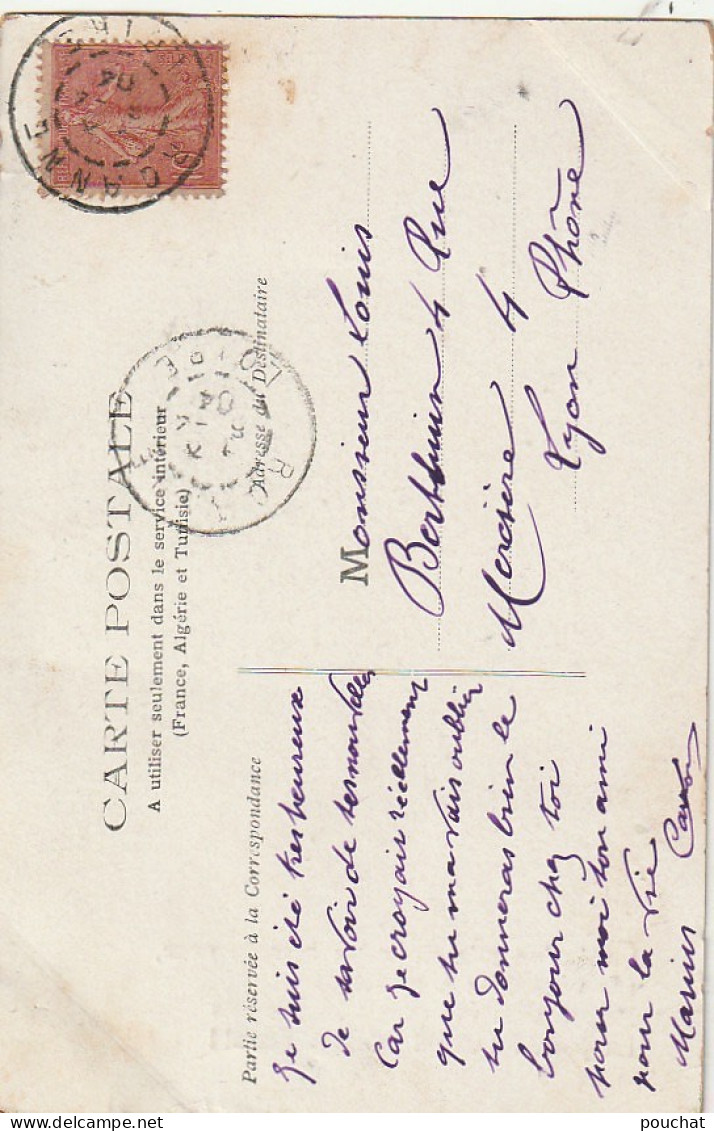 CARTE POSTALE
A utiliser seulement dans le service intérieur
(France, Algérie et Tunisie)
Partie réservée à la Correspondance
Adresse du Destinataire
je suis été tres heureux
de savoir de tes nouvelles
car je croyais réellement
que tu mavais oublier
tu donneras bien le
bonjour chez toi
pour moi ton ami
pour la vie
Marius
Monsieur Louis
4 Rue
Mercière 4
Lyon Rhône
CANNE
04
LOIRE
04
pouchat